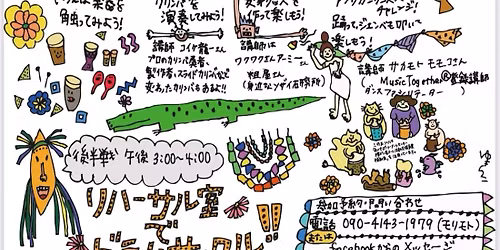 楽器を
触ってみよう!
カリンバを
演奏してみよう!
講師 コイケ龍一さん
プロのカリンバ奏者、
製作者。スライドカリンバなど
変わったカリンバもあるよ!!
作って楽しもう!
講師は
ワクワクさんアーミーこと
粗屋さん
チャレンジ!
踊って、ジェンベも叩いて
楽しもう!
講師 サカモト モモコさん
(Music Together®登録講師
ダンスファシリテーター
後半戦 午後 3:00~4:00
リハーサル室
で
ドラムサークル!!
参加予約・問い合わせ
電話 090-4143-1979 (モリモト)
または
facebookからのメッセージ